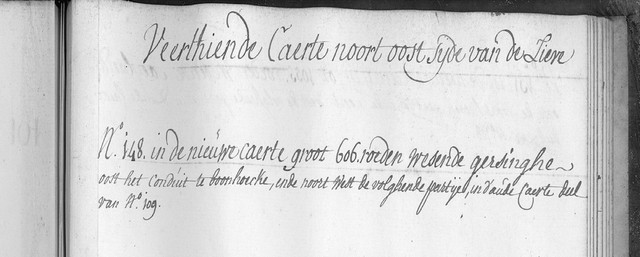 Veerthiende Caerte noort oost syde van de Lieve
N.º 148. in de nieuwe caerte groot 606. roeden wesende gersinghe
oost het conduit te boonhoecke, ende noort west de volghende partye, in d'aude Caerte deel
van Nº. 109.